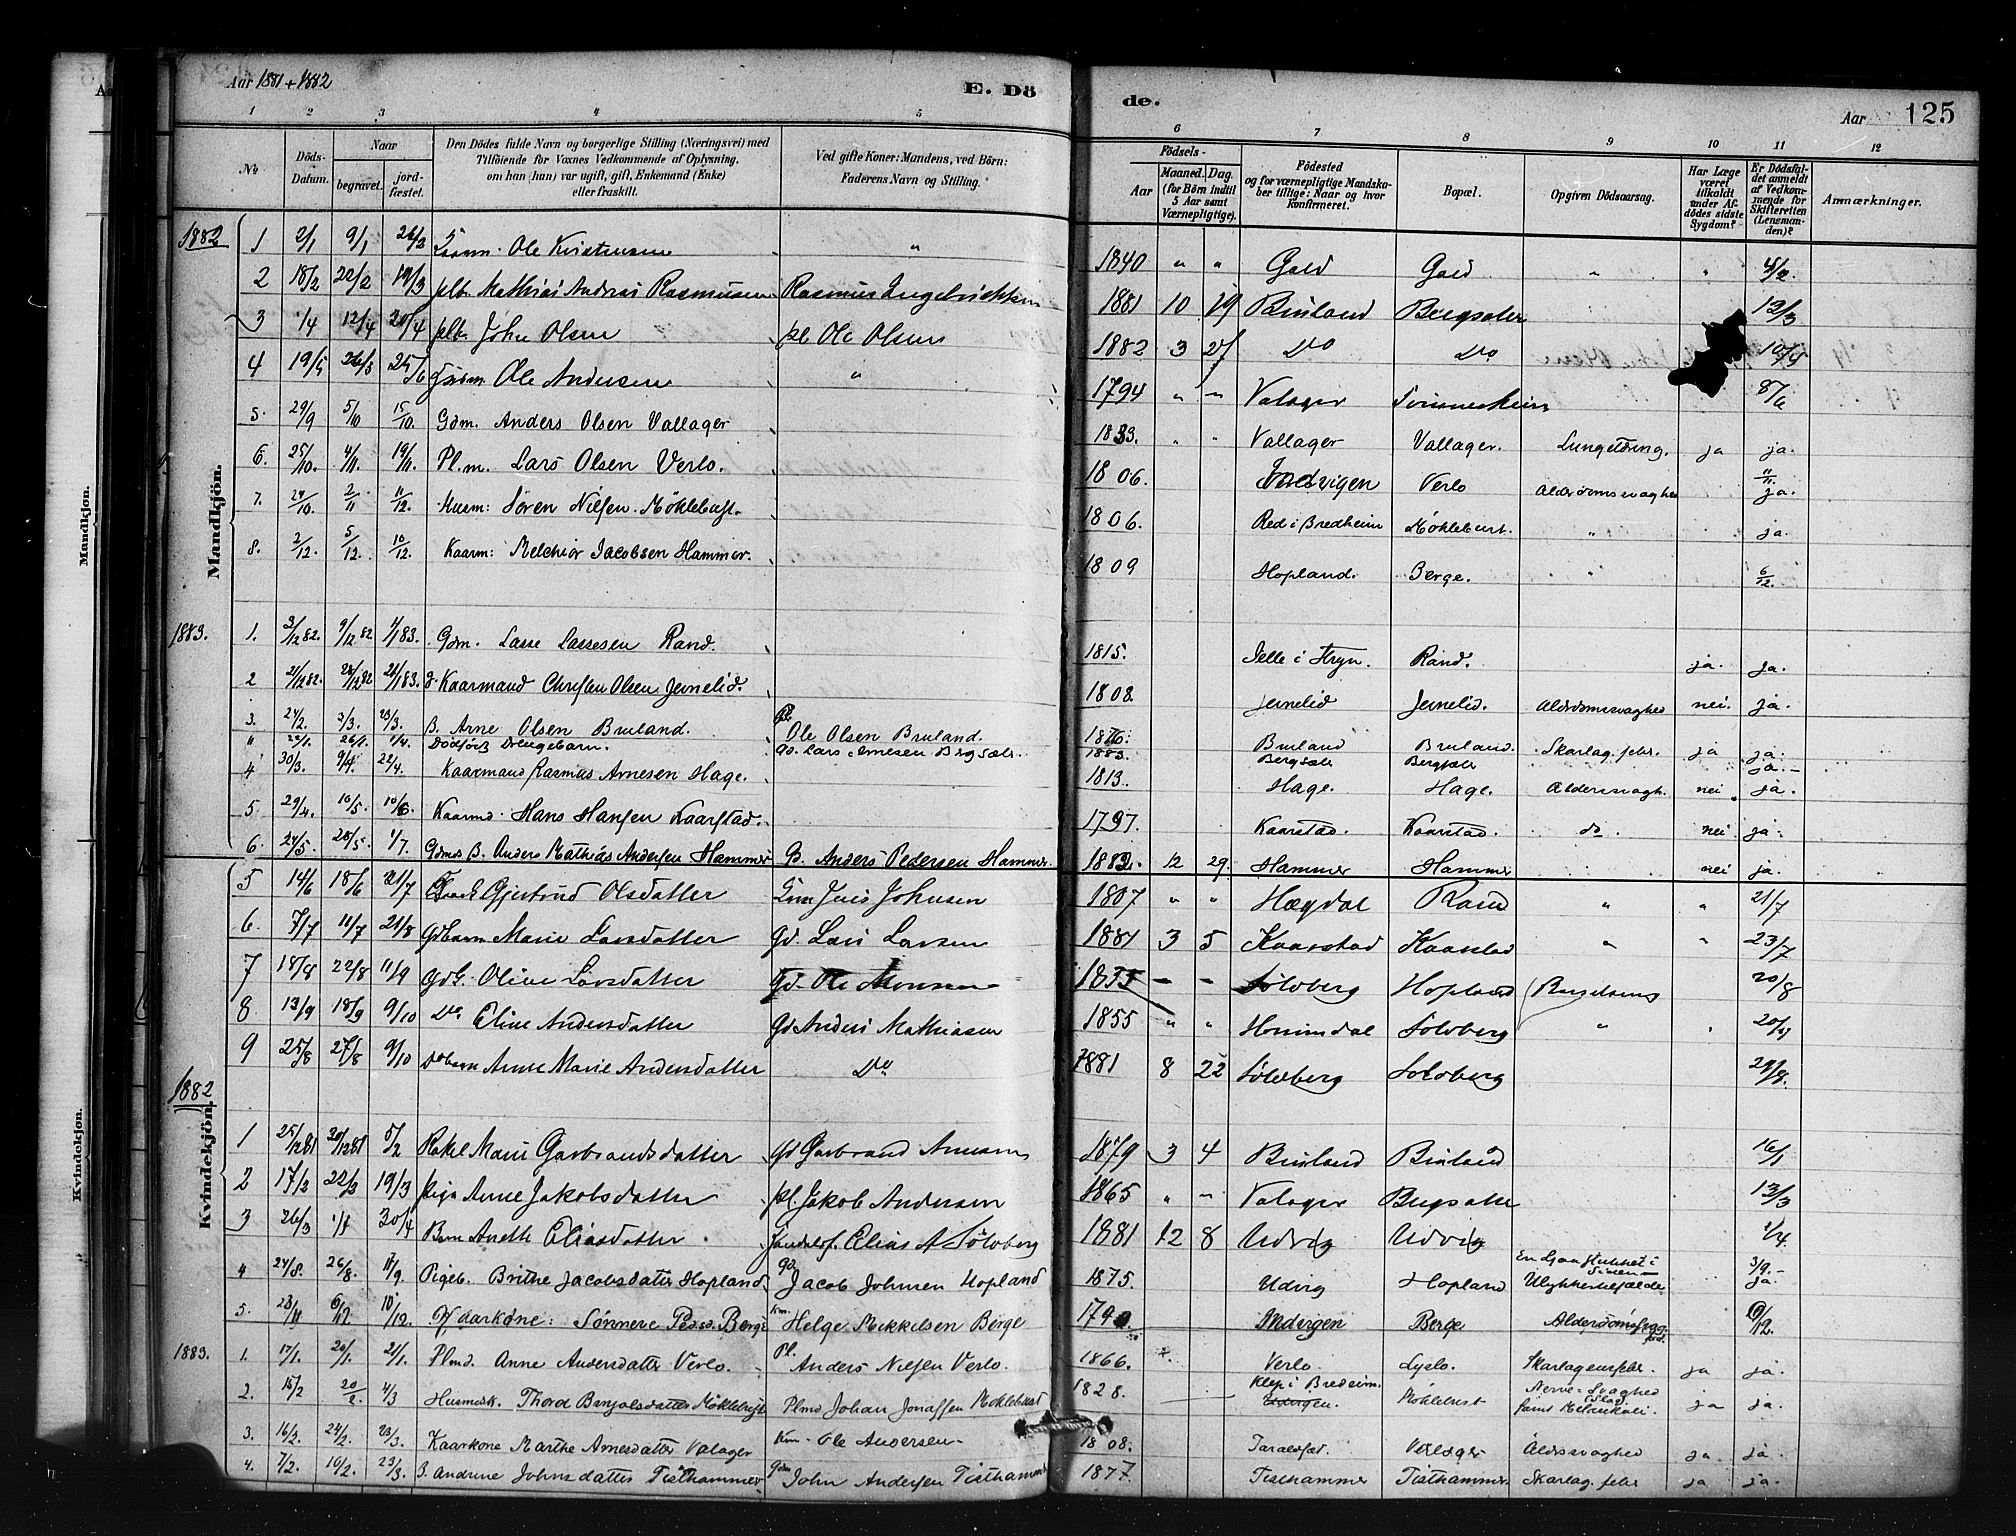 Aar 1881 + 1882
E. Dö
de.
Aar
125
1 2 3 4 5 6 7 8 9 10 11 12
No
Döds-Datum.
Naar
begravet.
jord-fæstet.
Den Dödes fulde Navn og borgerlige Stilling (Næringsvei) med
Tilföiende for Voxnes Vedkommende af Oplysning,
om han (hun) var ugift, gift, Enkemand (Enke)
eller fraskilt.
Ved gifte Koner: Mandens, ved Börn:
Faderens Navn og Stilling.
Födsels-
Aar
Maaned. Dag.
(for Börn indtil
5 Aar samt
Værnepligtige).
Födested
og for værnepligtige Mandska-
ber tillige: Naar og hvor
konfirmeret.
Bopæl.
Opgiven Dödsaarsag.
Har Læge
været
tilkaldt
under Af-
dödes sidste
Sygdom?
Er Dödsfal-
det anmeldt
af Vedkom-
mende for
Skifteretten
(Lensman-
den)?
Anmærkninger.
Mandkjön.
1882
1 2/1 9/1 26/3 Ole Kristensen " 1840 " " Gald Gald " "
2 18/2 22/2 19/3 Mathias Andreas Rasmusen Rasmus Ingebrichtsen 1881 10 19 Bruland Bergsater 12/3
3 1/4 12/4 30/4 John Olsen pl Ole Olsen 1882 3 27 Do Do 10/4
4 19/5 26/5 25/6 Ole Andersen " 1794 " " Valager 8/6
5. 29/9 5/10 15/10. Gdm. Anders Olsen Vallager 1833. " " Vallager Vallager. Lungetæring. ja ja.
6. 25/10. 4/11. 19/11. Pl.m. Lars Olsen Verlo. 1806. Indvigen Verlo Alderdomssvaghed 11/11. ja.
7. 24/10 2/11 11/12. Husm: Sören Nilsen Möklebust. 1806. Red i Bredheim Möklebust. " ja.
8. 2/12. 5/12. 10/12. Kaarm: Melchior Jacobsen Hammer. 1809 Hopland. Berge. " 6/12.
1883.
1. 3/12 82. 9/12 82 1/1 83. Gdm. Lasse Lassesen Rand. 1815. i Stryn. Rand. ja. ja.
2 21/12 82. 28/12 82 21/1 83. Kaarmand Christen Olsen Jevnelid. 1808. Jevnelid Jevnelid. Alderdomssvaghed nei. ja.
3. 24/2. 3/3. 23/3. B. Arne Olsen Bruland. Ole Olsen Bruland. 1876. Bruland Bruland. Skarlag. feber. ja ja.
" 24/1. 26/1. 1/4. Dödfödt Drengebarn. Gd. Lars Arnesen Bergsæter. 1883. Bergsæter Bergsæter ja.
4 30/3. 9/4. 22/4. Kaarmand Rasmus Arnesen Hage. 1813. Hage. Hage. Alderssvagh. nei ja.
5 29/4. 10/5. 10/6. Kaarmd. Hans Hansen Kaarstad. 1797. Kaarstad. Kaarstad. do. nei ja.
6. 24/5. 28/5. 1/7. Gdms B. Anders Mathias Andersen Hammer G. Anders Pedersen Hammer 1882. 12 29. Hammer Hammer nei ja.
5 14/6 18/6 21/7 Gjertrud Olsdatter Jens Johnsen 1807 " " Hægdal Rand " " 21/7
6. 7/7 11/7 21/8 Gdbarn Marie Larsdatter Gd. Lars Larsen 1881 3 5 Kaarstad Kaarstad " " 23/7
7 18/8 22/8 11/9 Gdk. Oline Larsdatter Gd. Ole Monsen 1835 - - Solvberg Hopland Barselseng 20/8
8 13/9 18/9 9/10 Do Eline Andersdatter Gd Anders Mathiasen 1855 " " Hornindal Solvberg " 20/9
9 25/8 27/8 9/10 Do barn Anne Marie Andersdatter Do 1881 8 22 Sölvberg Solvberg 29/8.
1882
Kvindekjön.
1 25/12 81 30/12 81 5/2 Rakel Marie Garbrandsdatter Gd Garbrand Arnesen 1879 3 4 Bruland Bruland 16/1
2 17/3 22/3 19/3 Pige Anne Jakobsdatter pl. Jakob Andersen 1865 " " Valager Bergsater 13/3
3 26/3 1/4 30/4 Barn Anette Eliasdatter. Elias A Sölvberg 1881 12 8 Udvig Udvig 1/4
4 24/8. 26/8. 17/9. Pigeb. Brithe Jacobsdatter Hopland Gd. Jacob Johnsen Hopland 1875. Udvig Hopland Ulykkestilfælde 3/9. ja.
5. 23/11 6/12 10/12. Kaarkone: Sönneve Pedsd. Berge Km. Helge Mikkelsen Berge Indvigen Berge Alderdomssvaghed
1883. 1. 17/1. 20/1. 21/1. Plmd. Anne Andersdatter Verlo. Pl. Anders Nilsen Verlo. 1866. Verlo. Lyslo. Skarlagensfeber. ja ja.
2. 15/2 20/2. 4/3 Husmsk. Thora Benjolsdatter Möklebust Plmd Johan Jonassen Moklebust 1828. Klep i Bredeim. Möklebust Nerve-Svaghed samt Melankoli. ja ja.
3. 16/2. 24/2. 23/3. Kaarkone Marthe Arnesdatter Valager Km. Ole Andersen 1808. Taraldset. Valager Alderssvaghed ja. ja.
4. 7/2. 10/2. 23/3. B. Andrine Johnsdatter Tisthammer Gdm John Andersen Tisthammer 1877. Tisthammer Tisthammer Skarlag. feber ja ja.
Mandkjön.
Kvindekjön.